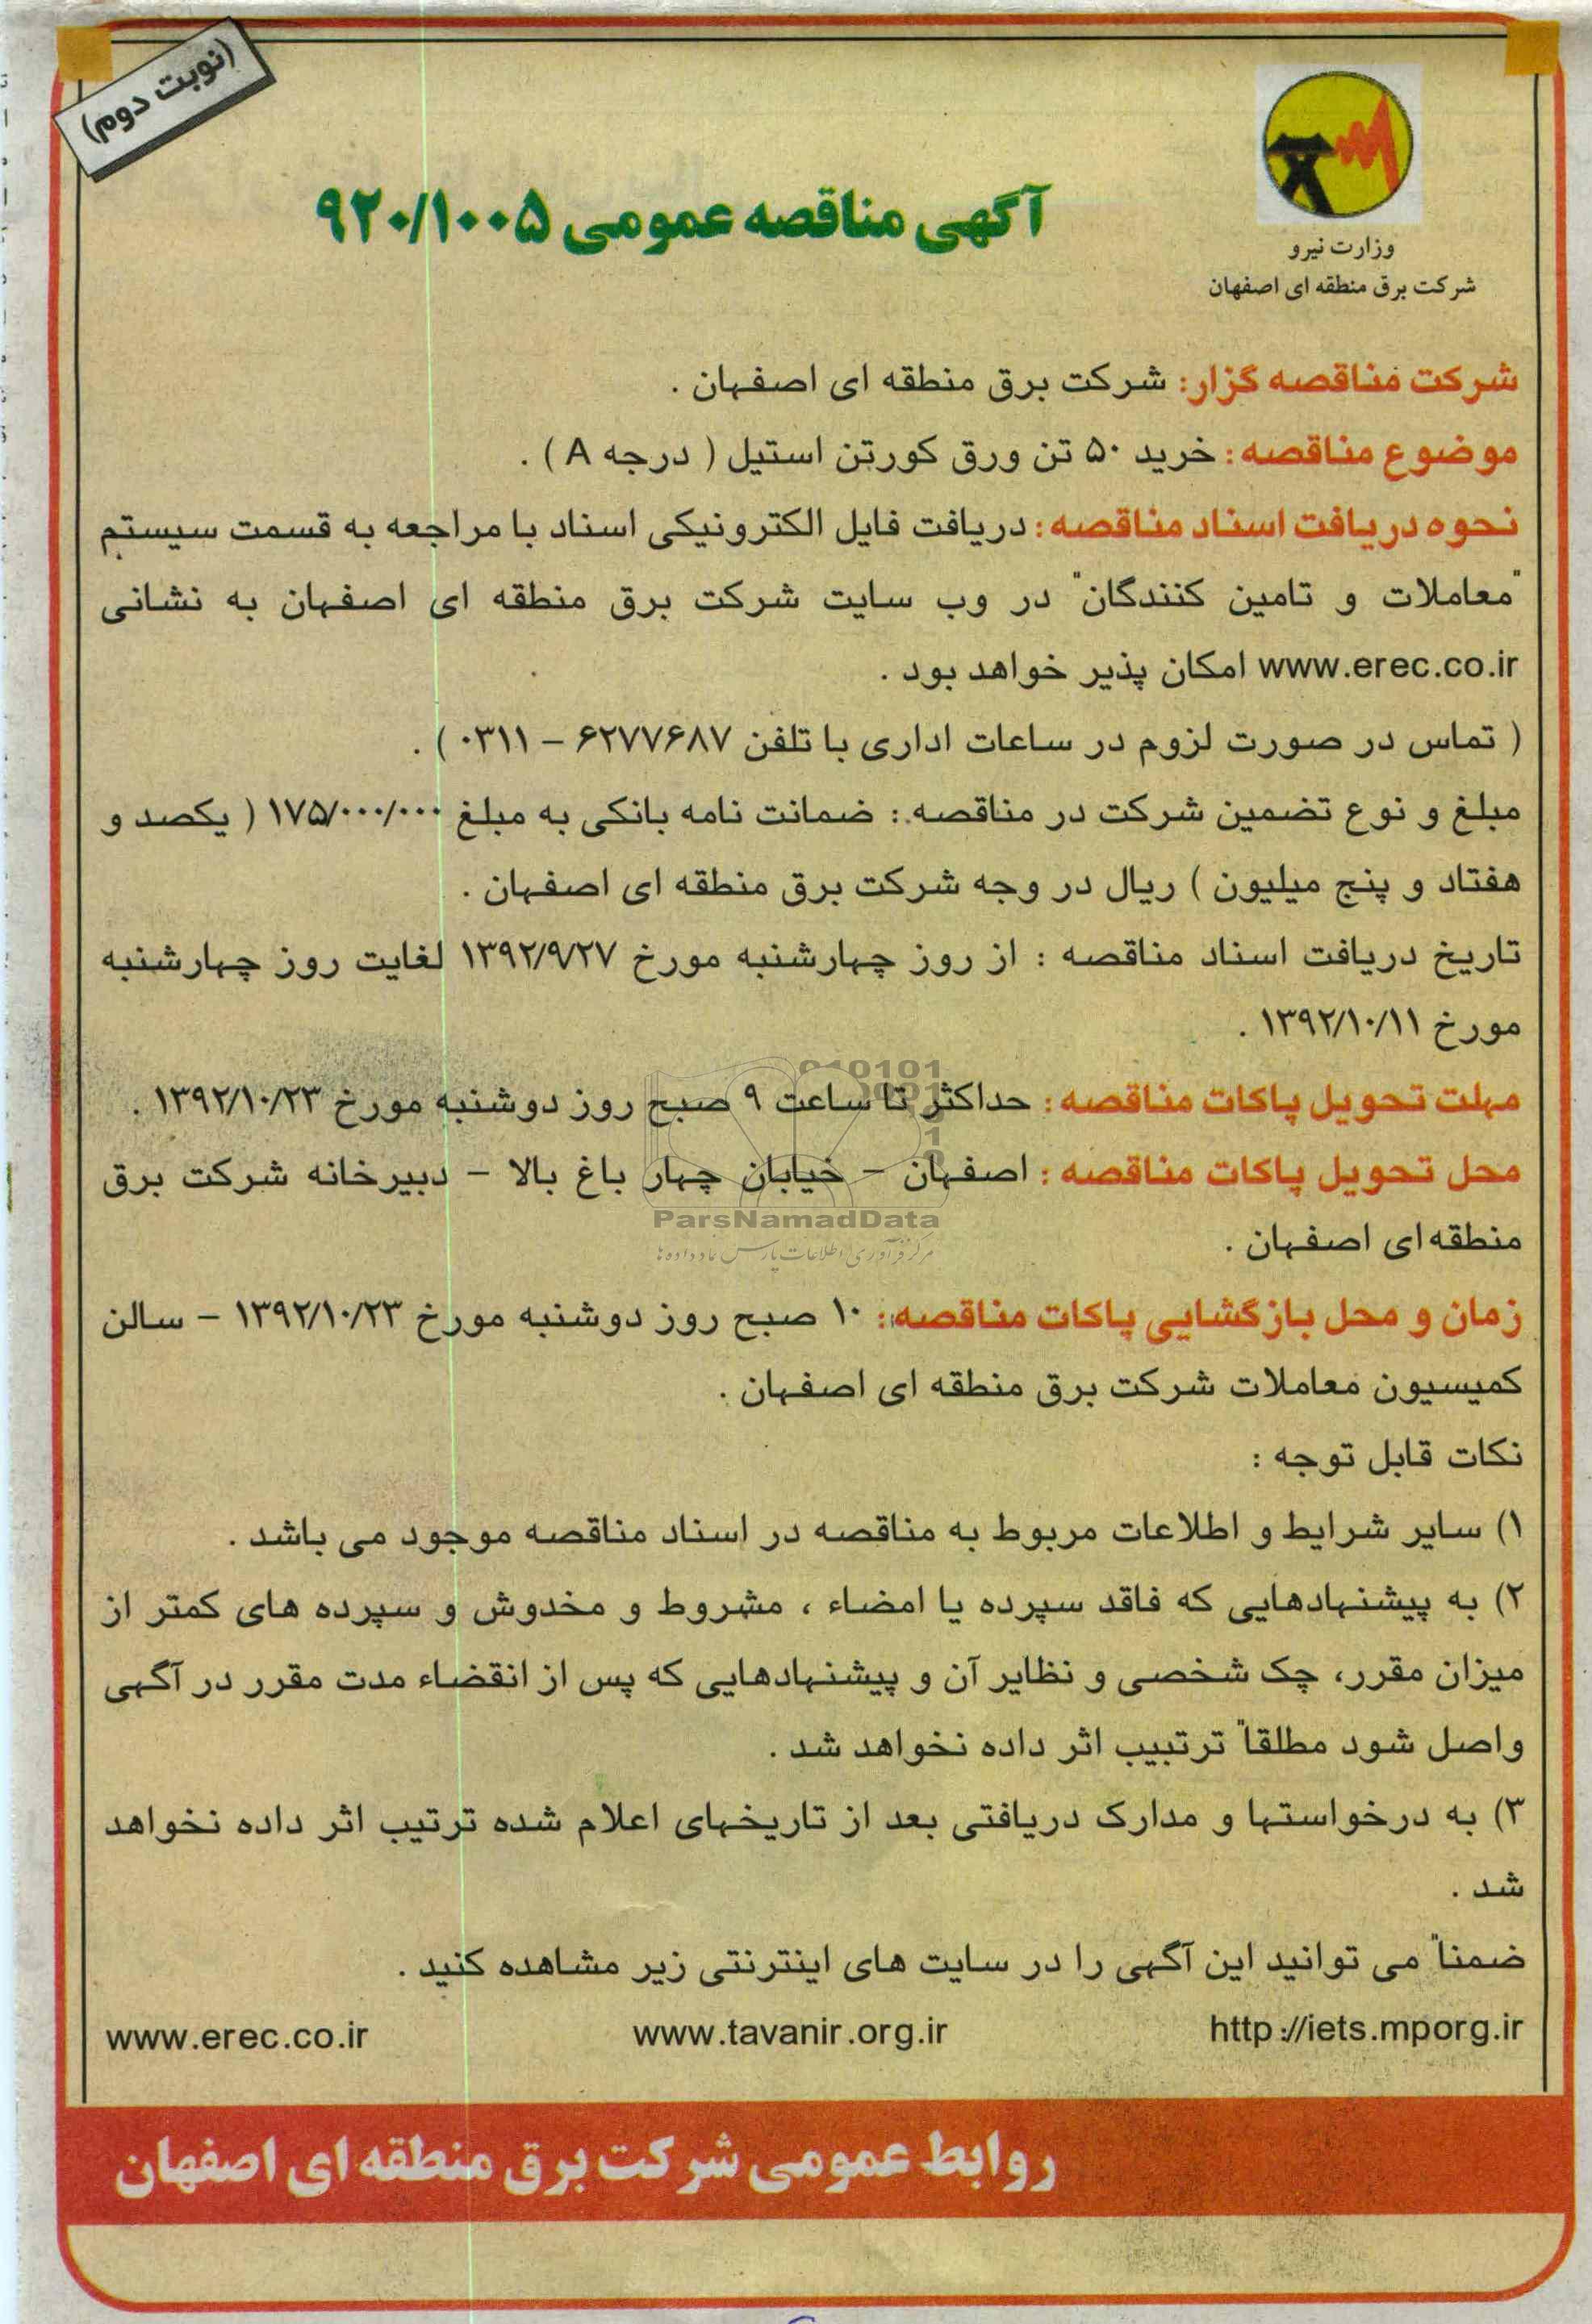 (نوبت دوم)
وزارت نیرو
شرکت برق منطقه ای اصفهان
آگهی مناقصه عمومی ۹۲۰/۱۰۰۵
شرکت مناقصه گزار: شرکت برق منطقه ای اصفهان .
موضوع مناقصه: خرید ۵۰ تن ورق کورتن استیل ( درجه A ) .
نحوه دریافت اسناد مناقصه: دریافت فایل الکترونیکی اسناد با مراجعه به قسمت سیستم
"معاملات و تامین کنندگان" در وب سایت شرکت برق منطقه ای اصفهان به نشانی
www.erec.co.ir امکان پذیر خواهد بود .
( تماس در صورت لزوم در ساعات اداری با تلفن ۶۲۷۷۶۸۷ – ۰۳۱۱ ) .
مبلغ و نوع تضمین شرکت در مناقصه : ضمانت نامه بانکی به مبلغ ۱۷۵/۰۰۰/۰۰۰ ( یکصد و
هفتاد و پنج میلیون ) ریال در وجه شرکت برق منطقه ای اصفهان .
تاریخ دریافت اسناد مناقصه : از روز چهارشنبه مورخ ۱۳۹۲/۹/۲۷ لغایت روز چهارشنبه
مورخ ۱۳۹۲/۱۰/۱۱ .
مهلت تحویل پاکات مناقصه : حداکثر تا ساعت ۹ صبح روز دوشنبه مورخ ۱۳۹۲/۱۰/۲۳ .
محل تحویل پاکات مناقصه : اصفهان – خیابان چهار باغ بالا – دبیرخانه شرکت برق
منطقه ای اصفهان .
ParsNamadData
مرکز فرآوری اطلاعات پارس نماد داده ها
زمان و محل بازگشایی پاکات مناقصه: ۱۰ صبح روز دوشنبه مورخ ۱۳۹۲/۱۰/۲۳ – سالن
کمیسیون معاملات شرکت برق منطقه ای اصفهان .
نکات قابل توجه :
۱) سایر شرایط و اطلاعات مربوط به مناقصه در اسناد مناقصه موجود می باشد .
۲) به پیشنهادهایی که فاقد سپرده یا امضاء ، مشروط و مخدوش و سپرده های کمتر از
میزان مقرر، چک شخصی و نظایر آن و پیشنهادهایی که پس از انقضاء مدت مقرر در آگهی
واصل شود مطلقاً ترتبیب اثر داده نخواهد شد .
۳) به درخواستها و مدارک دریافتی بعد از تاریخهای اعلام شده ترتیب اثر داده نخواهد
شد .
ضمناً می توانید این آگهی را در سایت های اینترنتی زیر مشاهده کنید .
http://iets.mporg.ir www.tavanir.org.ir www.erec.co.ir
روابط عمومی شرکت برق منطقه ای اصفهان